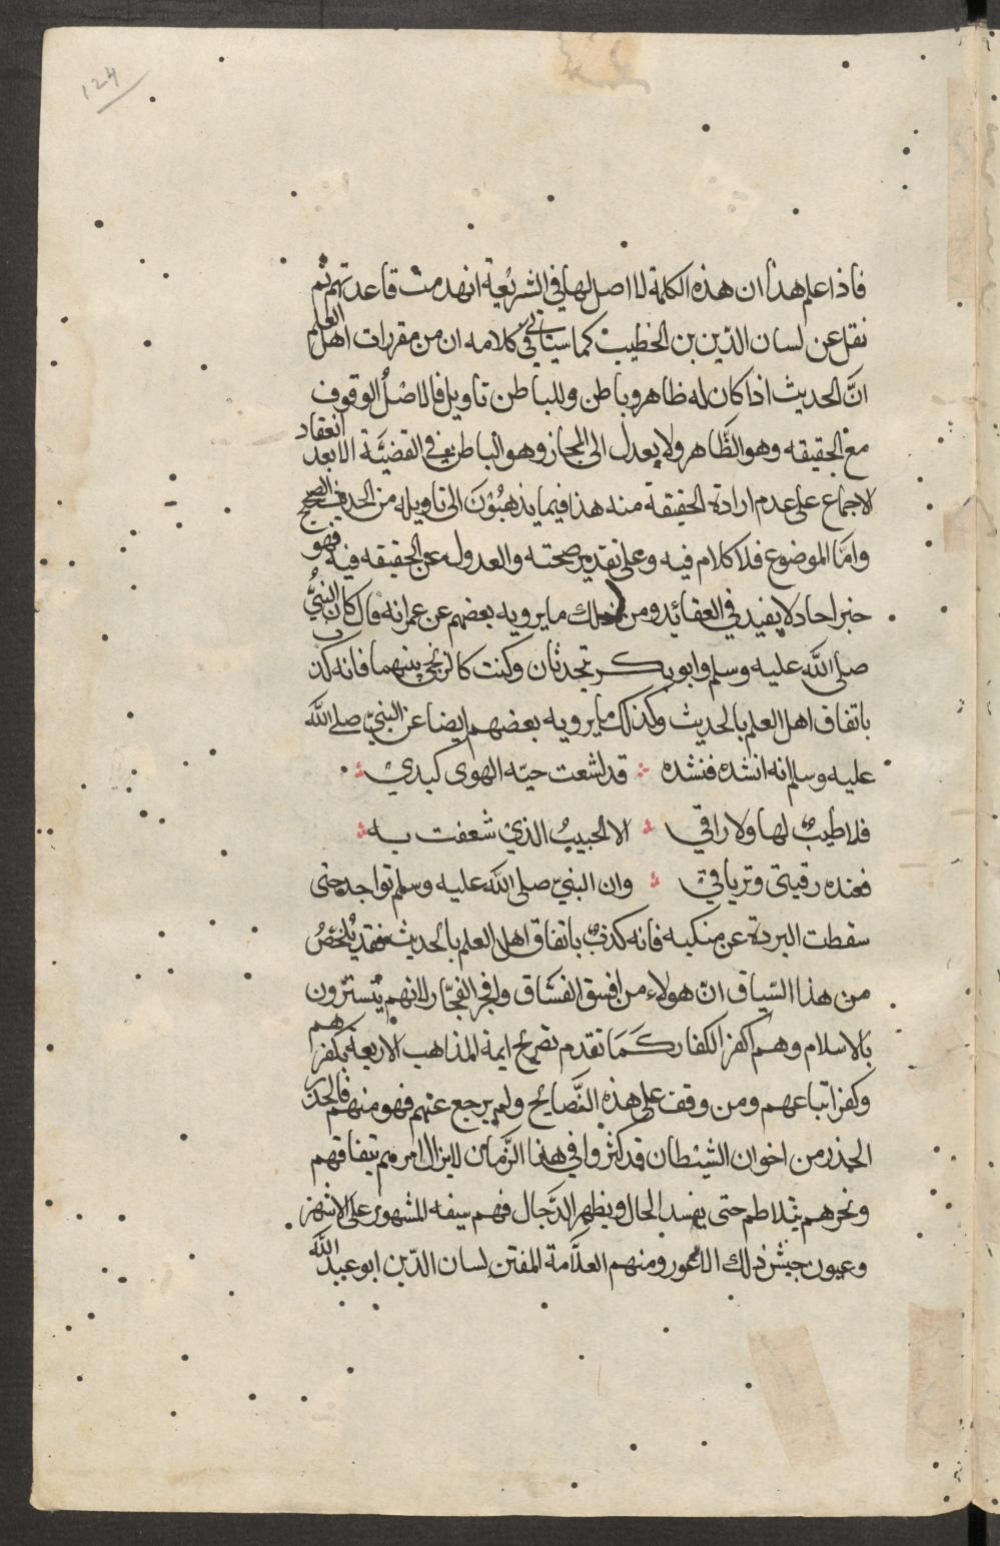 ١٢٤
فاذا علم هذا ان هذه الكلمة لا اصل لها في الشريعة انهدمت قاعدتهم ثم
نقل عن لسان الدين بن الخطيب كما سياتي في كلامه ان من مقررات اهل العلم
انَّ الحديث اذا كان له ظاهر وباطن وللباطن تاويل فالاصْلُ الوقوف
مع الحقيقه وهو الظَّاهر ولا يعدل الى المجاز وهو الباطن في القضيَّة الا بعد انعقاد
الاجماع على عدم ارادة الحقيقة منه هذا فيما يذهبُوْنَ الى تاويله من الحديث الصحيح
وامَّا الموضوع فلا كلام فيه وعلى تقدير صحته والعدول عن الحقيقه فيه فهو
خبر احاد لا يفيد في العقائد ومن ذلك ما يرويه بعضهم عن عمر انه قال كان النبيُّ
صلى اللَّه عليه وسلم وابو بكر يتحدثان وكنت كالزنجي بينهما فانه كذب
باتفاق اهل العلم بالحديث وكذلك ما يرويه بعضهم ايضا عن النبيّ صلى اللَّه
عليه وسلم انه انشده منشده قد لسعت حيّه الهوى كبدي
فلا طبيبٌ لها ولا راقي الا الحبيبُ الذي شعفت به
فعنده رقيتي وترياقي وان النبيّ صلى اللَّه عليه وسلم تواجد حتى
سقطت البردة عن منكبيه فانه كذبٌ باتفاق اهل العلم بالحديث فقد تلخصُ
من هذا السّياق انّ هولاء من افسق الفسّاق وافجر الفجّار لانهم يتسترون
بالاسلام وهم اكفر الكفار كَمَا تقدم تصريح ايمة المذاهب الاربعة بكفرهم
وكفر اتباعهم ومن وقف على هذه النَّصايح ولم يرجع عنهم فهو منهم فالحذر
الحذر من اخوان الشيْطان قد كثروا في هذا الزَّمان لا يزال امرهم يتفاقهم
ونحرهم يتلاطم حتى يفسد الحال ويظهر الدَّجال فهم سيفه المشهور على الاشهر
وعيون جيش ذلك الاعور ومنهم العلَّامة المفتن لسان الدّين ابو عبد اللَّه